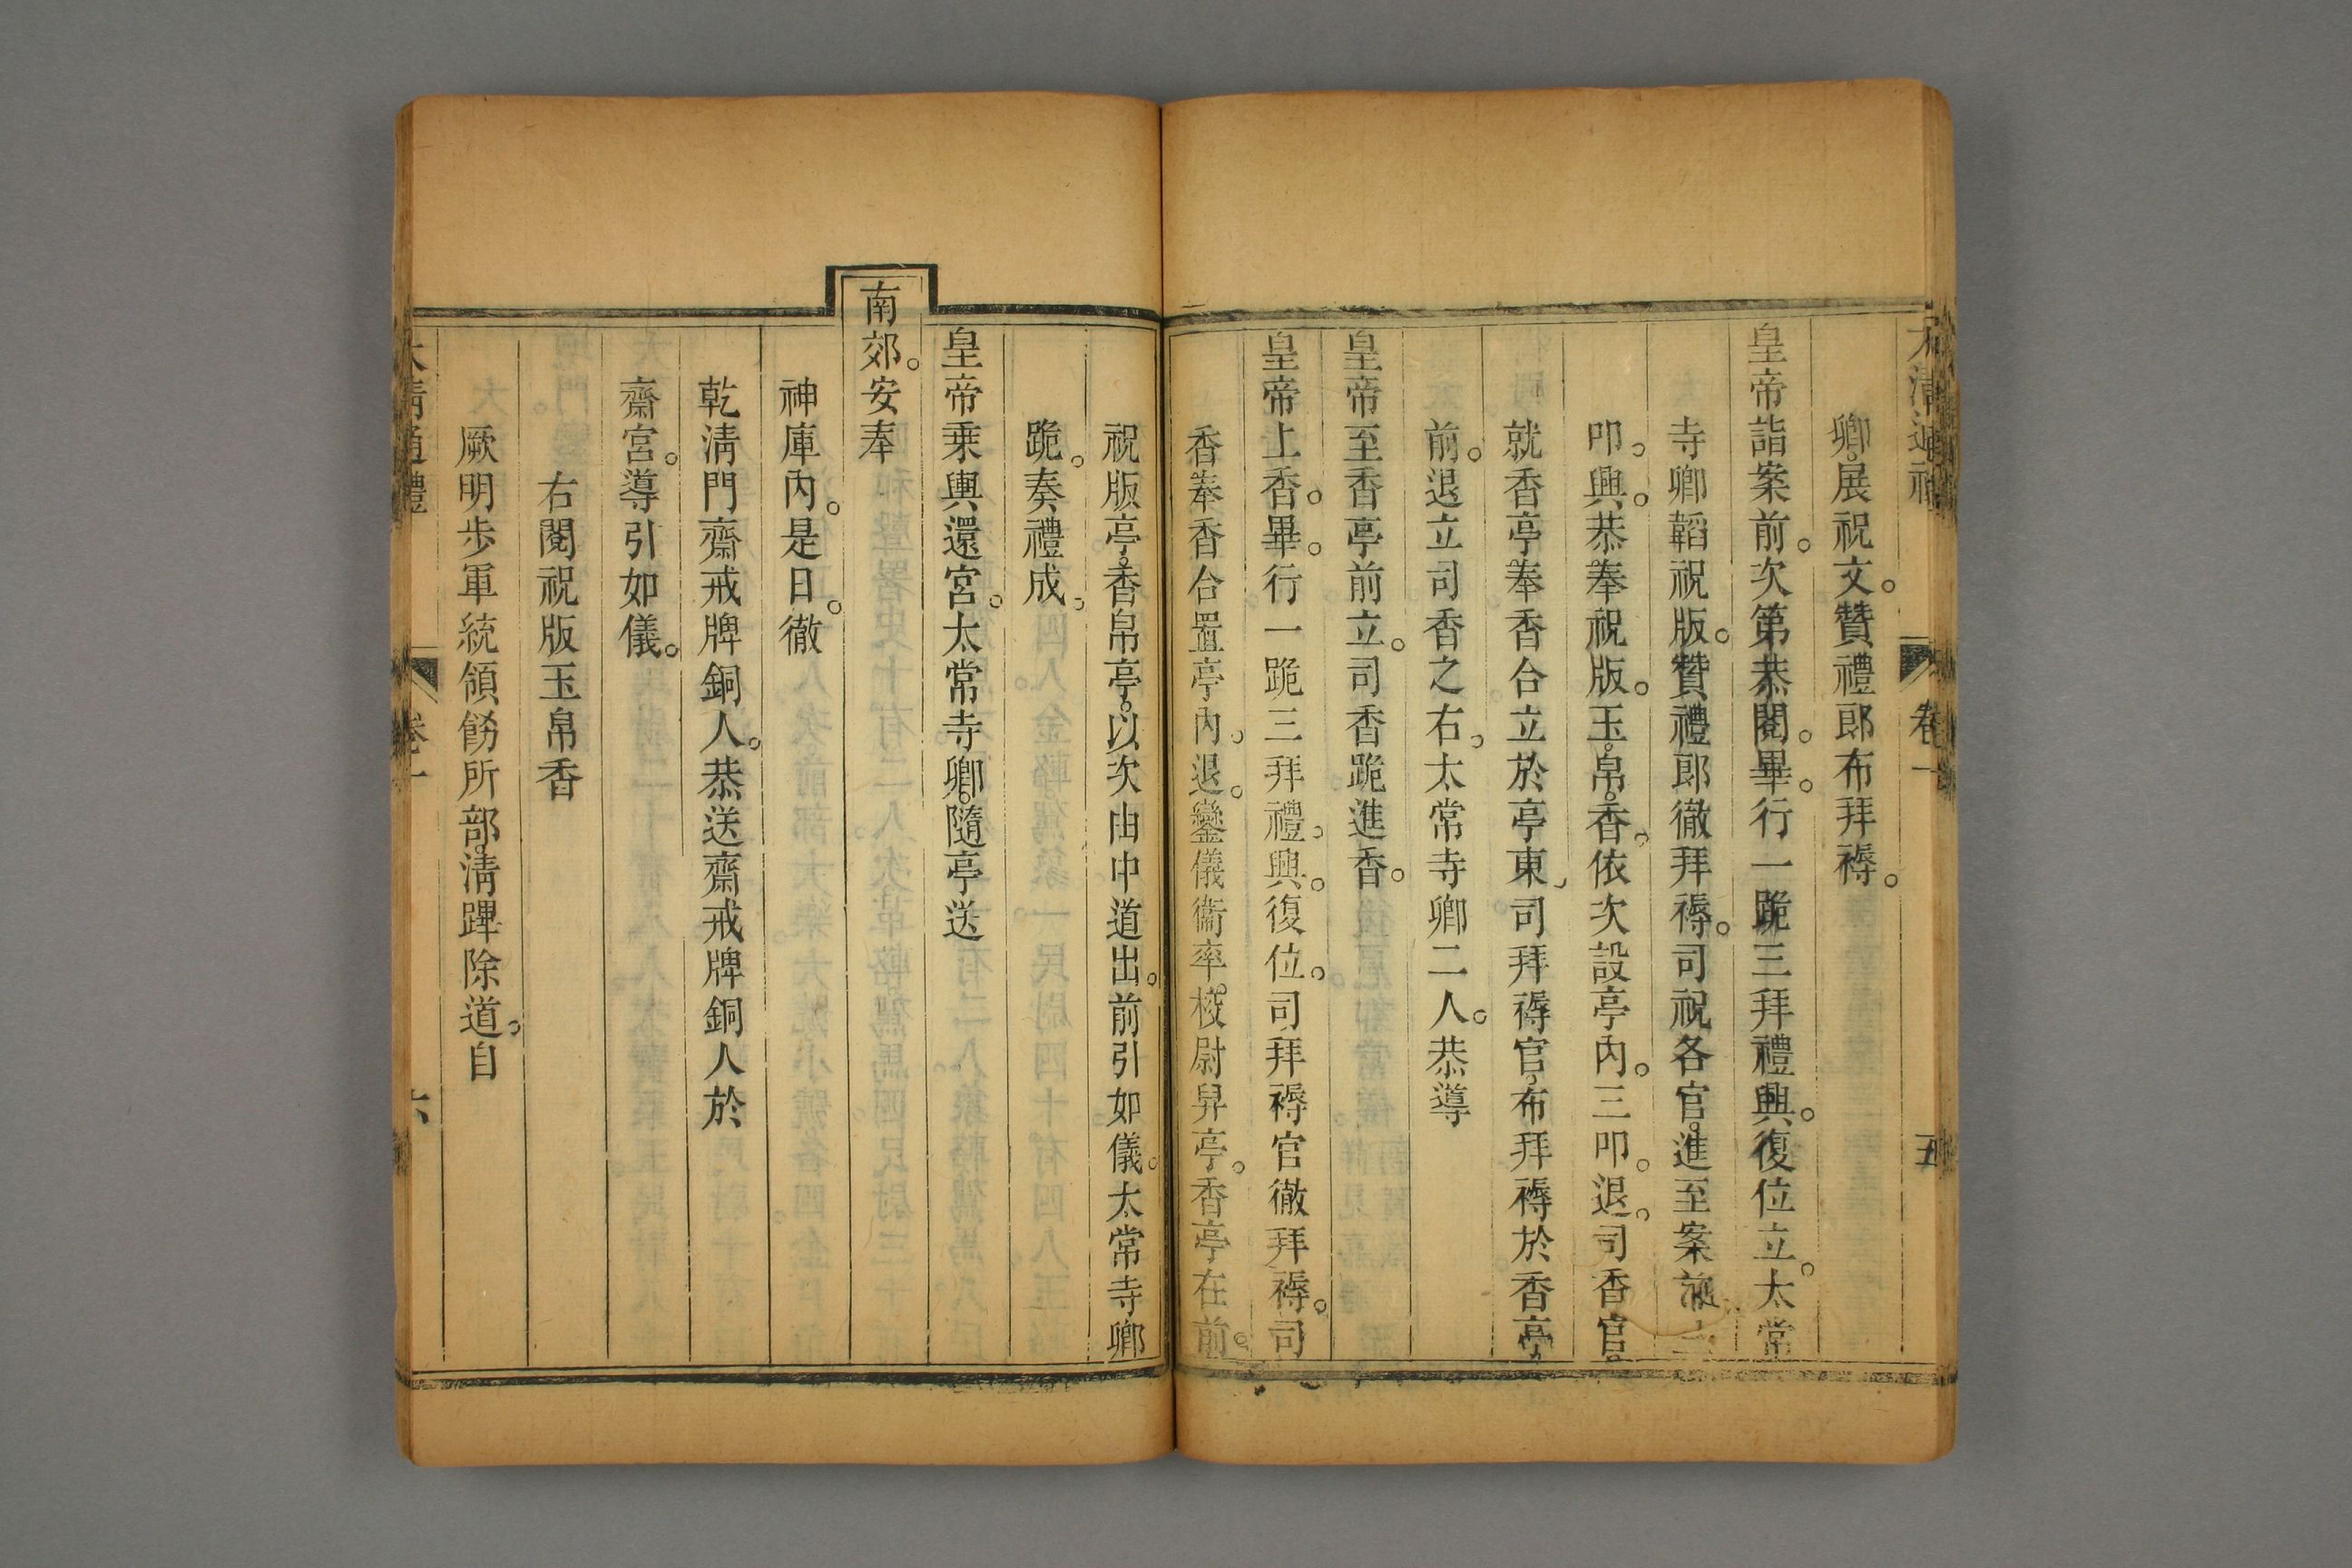 大清通禮 卷一 五
卿。展祝文。贊禮郎布拜褥。
皇帝詣案前。次第恭閱。畢。行一跪三拜禮。興。復位立。太常
寺卿韜祝版。贊禮郎徹拜褥。司祝各官。進至案前。
叩。興。恭奉祝版。玉。帛。香。依次設亭內。三叩。退。司香官。
就香亭奉香合立於亭東。司拜褥官。布拜褥於香亭
前。退立司香之右。太常寺卿二人。恭導
皇帝至香亭前立。司香跪進香。
皇帝上香。畢。行一跪三拜禮。興。復位。司拜褥官徹拜褥。司
香奉香合置亭內。退。鑾儀衞率。校尉舁亭。香亭在前。
祝版亭。香帛亭。以次由中道出。前引如儀。太常寺卿
跪。奏禮成。
皇帝乗輿還宮。太常寺卿。隨亭送
南郊。安奉
神庫內。是日。徹
乾淸門齋戒牌銅人。恭送齋戒牌銅人於
齋宮。導引如儀。
右閱祝版玉帛香
厥明步軍統領飭所部。淸蹕除道。自
大清通禮 卷一 六